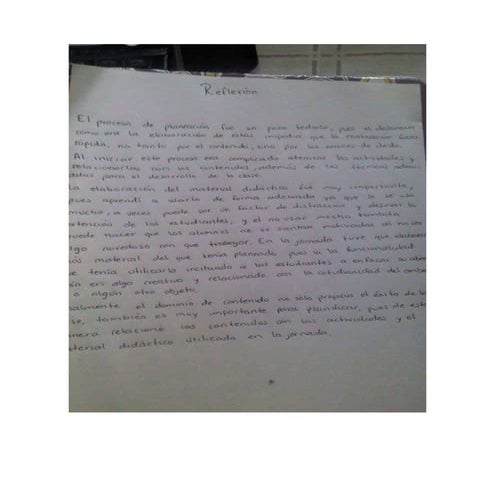 Reflexión
El proceso de planeación fue un poco tedioso, pues el
como era la elaboración de estas impedía que la realización fuera
rápida, no tanto por el contenido, sino por los errores de dedo.
Al iniciar este proceso era complicado aterrizar las actividades y
relacionarlas con los contenidos, además de las técnicas
para el desarrollo de la clase.
La elaboración del material didáctico fue muy importante,
pues aprendí a usarlo de forma adecuada ya que si se usa
mucho, a veces puede ser un factor de distracción y desviar la
atención de los estudiantes, y el no usar mucho también
puede hacer que los alumnos no se sientan motivados al no ver
algo novedoso con que trabajar. En la jornada tuve que elaborar
más material del que tenía planeado pues vi la funcionalidad
que tenía utilizarlo incitando a los estudiantes a enfocar su
en algo creativo y relacionado con la cotidianidad del
o algún otro objeto.
el dominio de contenido no sólo propicia el éxito de la
también es muy importante para planificar, pues de esta
manera relacioné los contenidos con las actividades y el
material didáctico utilizado en la jornada.